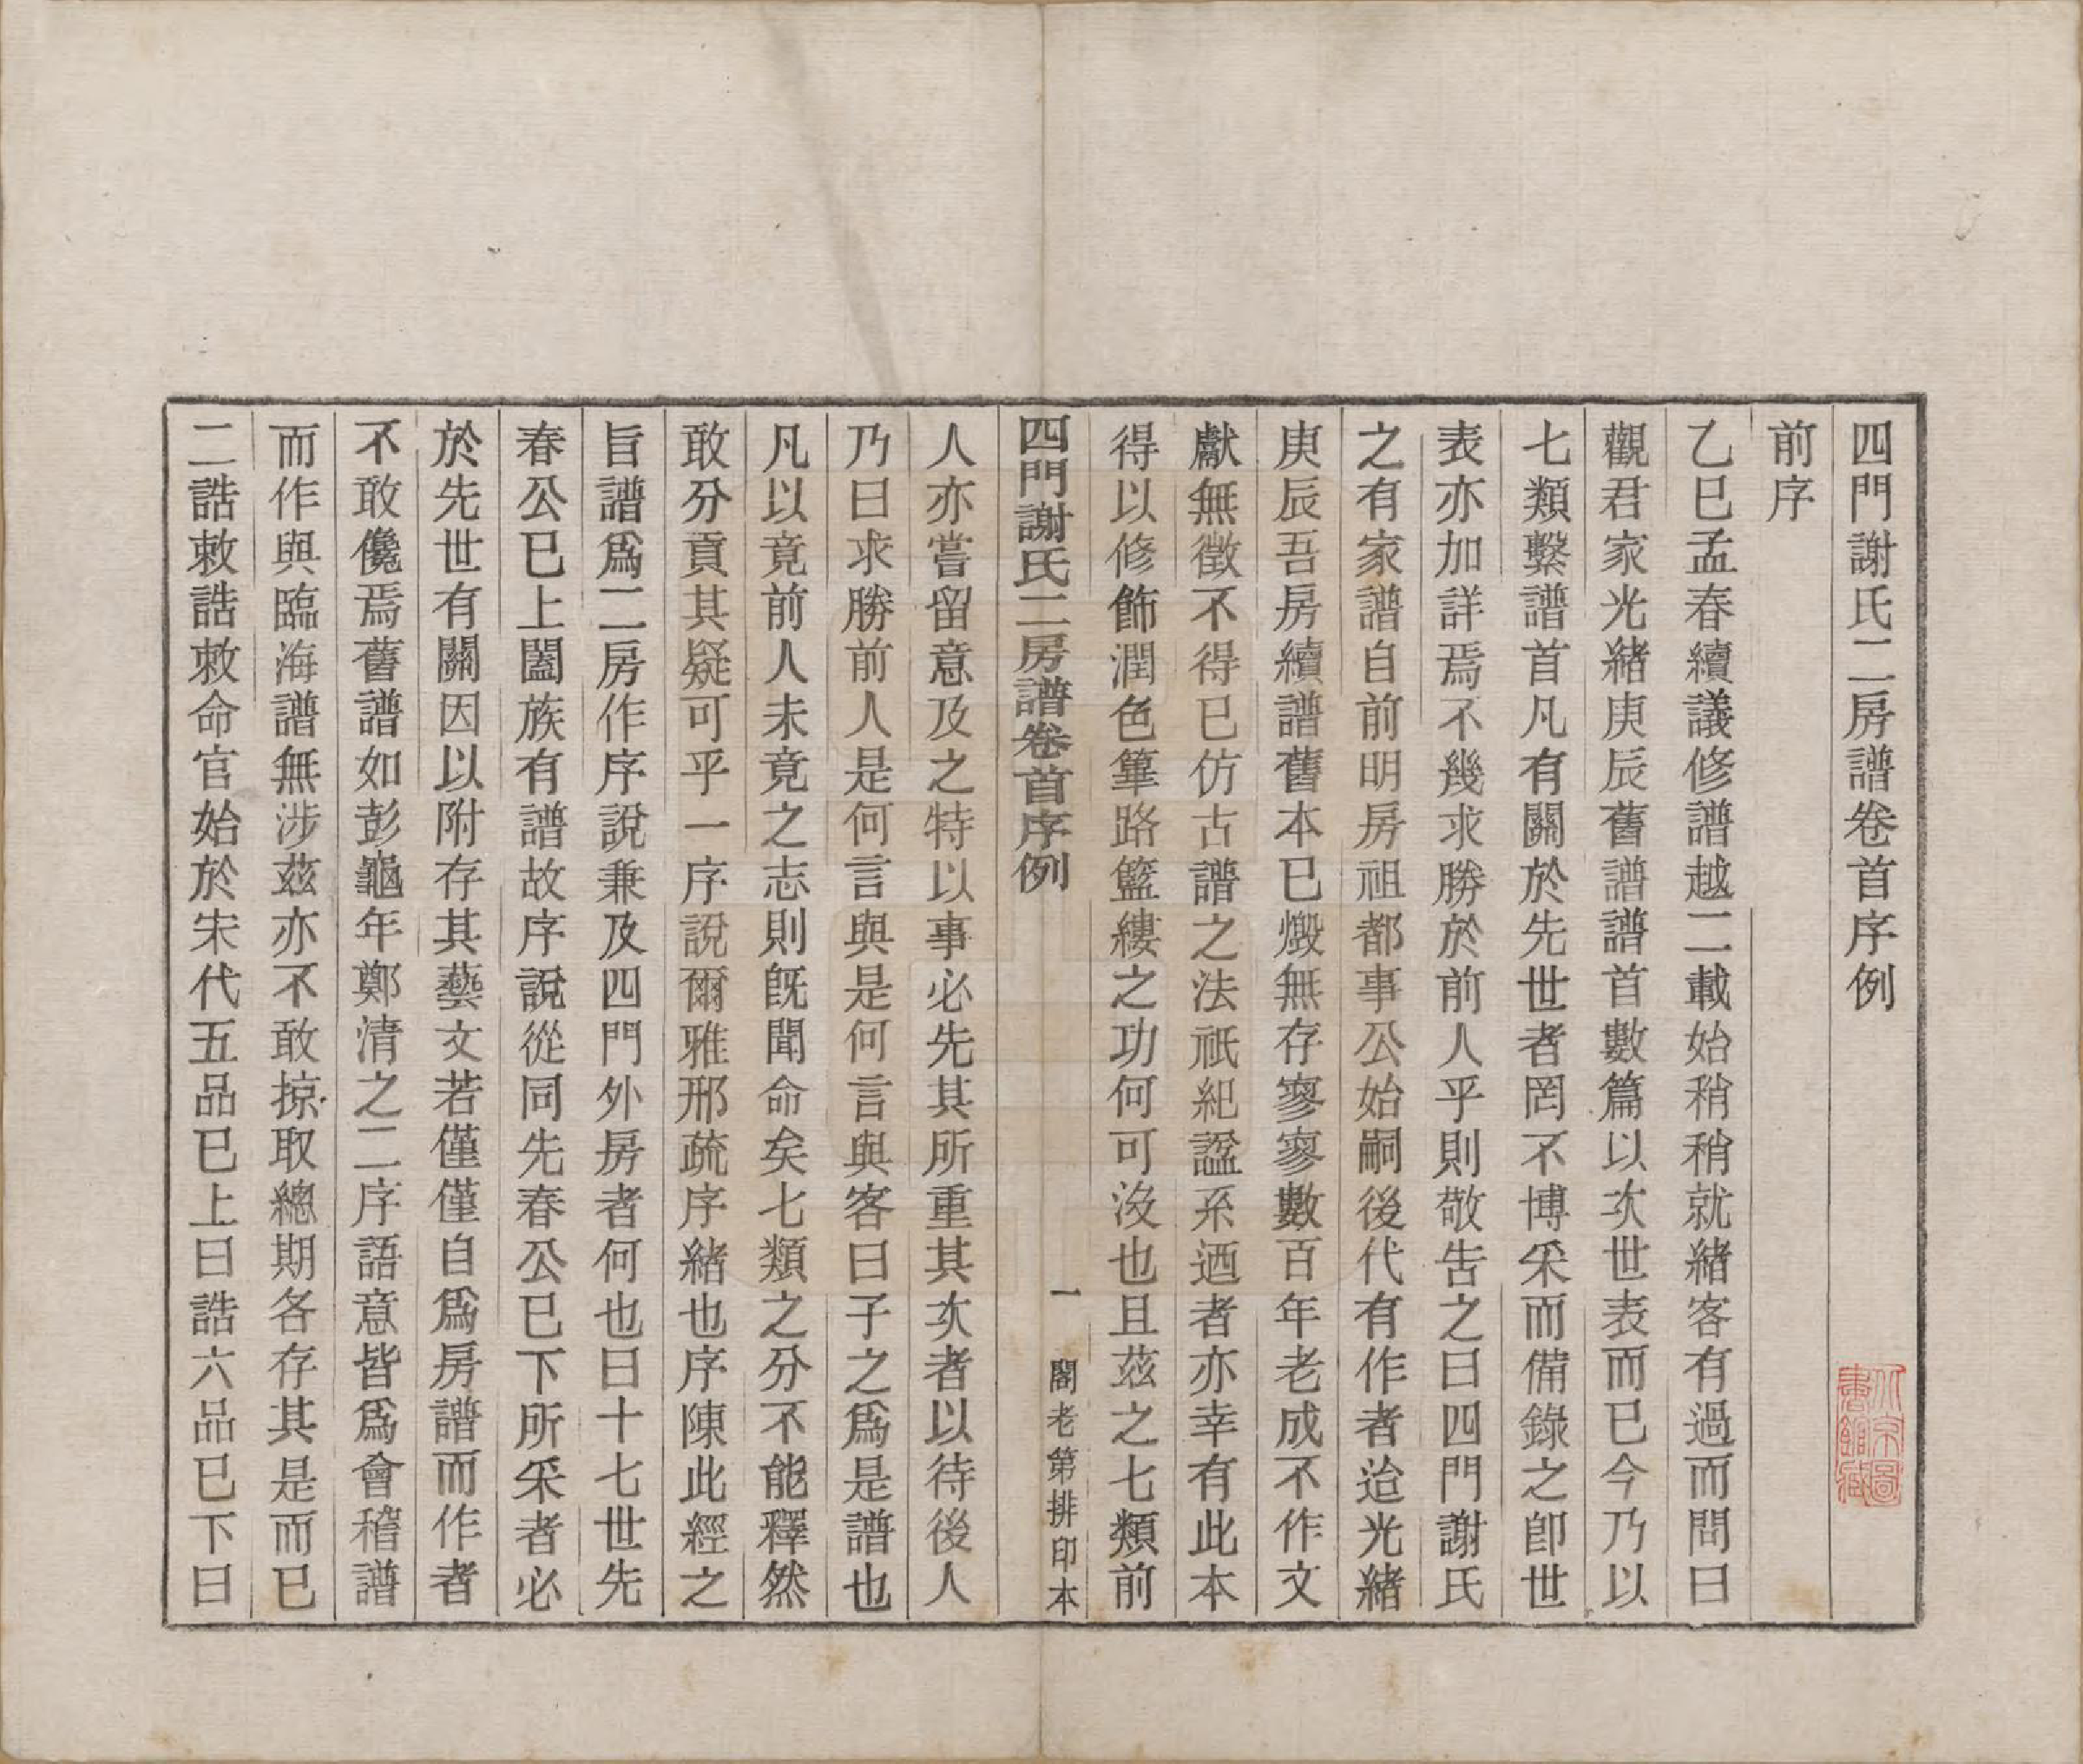 四門謝氏二房譜卷首序例
前序
乙巳孟春續議修譜越二載始稍稍就緒客有過而問曰
觀君家光緒庚辰舊譜譜首數篇以次世表而已今乃以
七類繫譜首凡有關於先世者罔不博采而備錄之卽世
表亦加詳焉不幾求勝於前人乎則敬吿之曰四門謝氏
之有家譜自前明房祖都事公始嗣後代有作者迨光緒
庚辰吾房續譜舊本已燬無存寥寥數百年老成不作文
獻無徵不得已仿古譜之法祇紀諡系迺者亦幸有此本
得以修飾潤色篳路籃縷之功何可沒也且茲之七類前
四門謝氏二房譜卷首序例
一
閣老第排印本
人亦嘗留意及之特以事必先其所重其次者以待後人
乃曰求勝前人是何言與是何言與客曰子之爲是譜也
凡以竟前人未竟之志則旣聞命矣七類之分不能釋然
敢分貢其疑可乎一序說爾雅邢疏序緒也序陳此經之
旨譜爲二房作序說兼及四門外房者何也曰十七世先
春公已上闔族有譜故序說從同先春公已下所采者必
於先世有關因以附存其藝文若僅僅自爲房譜而作者
不敢儳焉舊譜如彭龜年鄭清之二序語意皆爲會稽譜
而作與臨海譜無涉茲亦不敢掠取總期各存其是而已
二誥敕誥敕命官始於宋代五品已上曰誥六品已下曰